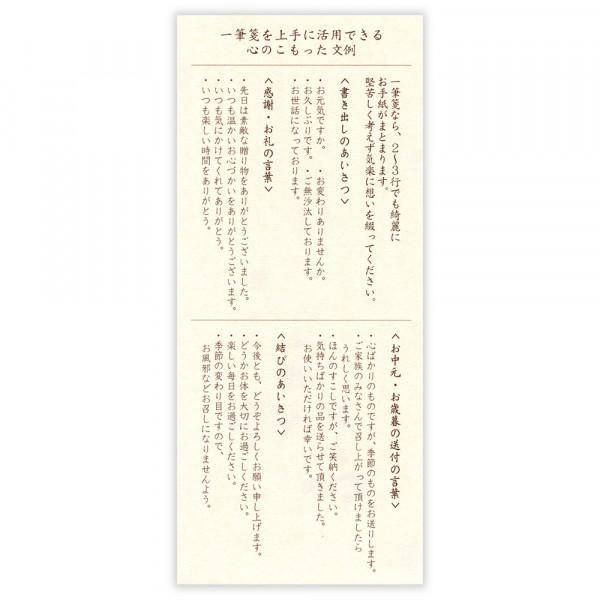 一筆箋を上手に活用できる
心のこもった文例
一筆箋なら、2〜3行でも綺麗に
お手紙がまとまります。
堅苦しく考えず気楽に想いを綴ってください。
〈書き出しのあいさつ〉
・お元気ですか。　・お変わりありませんか。
・お久しぶりです。・ご無沙汰しております。
・お世話になっております。
〈感謝・お礼の言葉〉
・先日は素敵な贈り物をありがとうございました。
・いつも温かいお心づかいをありがとうございます。
・いつも気にかけてくれてありがとう。
・いつも楽しい時間をありがとう。
〈お中元・お歳暮の送付の言葉〉
・心ばかりのものですが、季節のものをお送りします。
・ご家族のみなさんで召し上がって頂けましたら
うれしく思います。
・ほんのすこしですが、ご笑納ください。
・気持ちばかりの品を送らせて頂きました。
お使いいただければ幸いです。
〈結びのあいさつ〉
・今後とも、どうぞよろしくお願い申し上げます。
・どうかお体を大切にお過ごしください。
・楽しい毎日をお過ごしください。
・季節の変わり目ですので、
お風邪などお召しになりませんよう。